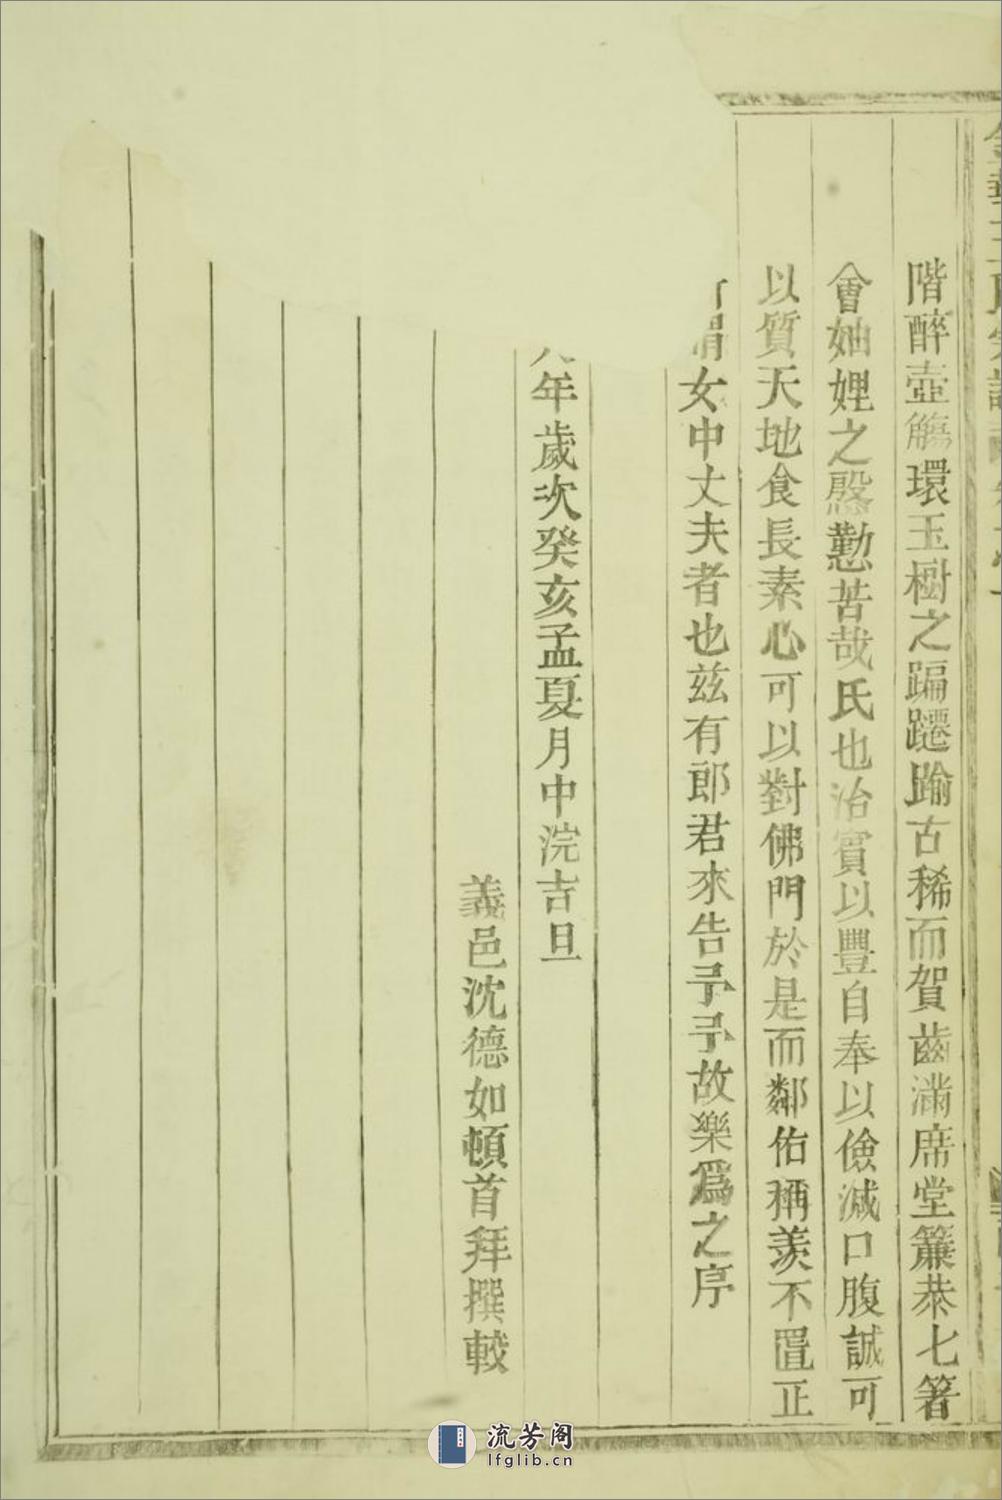 階醉壺觴環玉樹之蹁躚踰古稀而賀齒滿席堂簾恭七箸
會妯娌之慇懃苦哉氏也治賓以豐自奉以儉減口腹誠可
以質天地食長素心可以對佛門於是而鄰佑稱羨不置正
謂女中丈夫者也玆有郎君來告予予故樂爲之序
年歲次癸亥孟夏月中浣吉旦
義邑沈德如頓首拜撰較
流芳阁
lfglib.cn